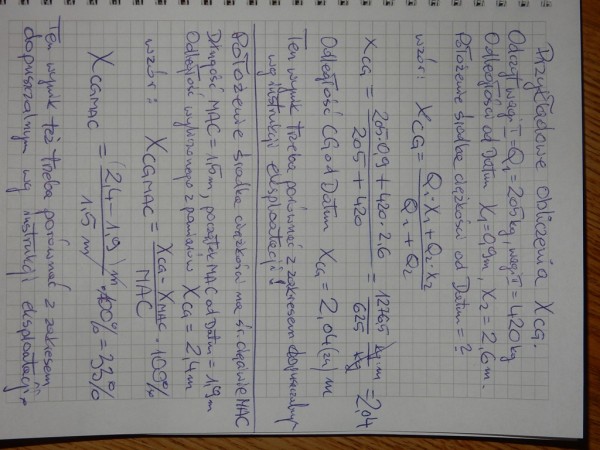 Przykładowe obliczenia XCG.
Odczyt wagi I = Q1 = 205 kg, wagi II = 420 kg
Odległości od Datum X1 = 0,9 m, X2 = 2,6 m.
Położenie środka ciężkości od Datum = ?
wzór: XCG = (Q1·X1 + Q2·X2) / (Q1 + Q2)
XCG = (205·0,9 + 420·2,6) / (205 + 420) = 1276,5 kg·m / 625 kg = 2,04
Odległość CG od Datum XCG = 2,04(24) m
Ten wynik trzeba porównać z zakresem dopuszczalnym
wg instrukcji eksploatacji!
Położenie środka ciężkości na śr. cięciwie MAC
Długość MAC = 1,5 m, początek MAC od Datum = 1,9 m
Odległość wyliczonego z pomiarów XCG = 2,4 m
wzór: XCG MAC = (XCG - XMAC) / MAC · 100%
XCG MAC = (2,4 - 1,9) m / 1,5 m · 100% = 33%
Ten wynik też trzeba porównać z zakresem
dopuszczalnym wg instrukcji eksploatacji.